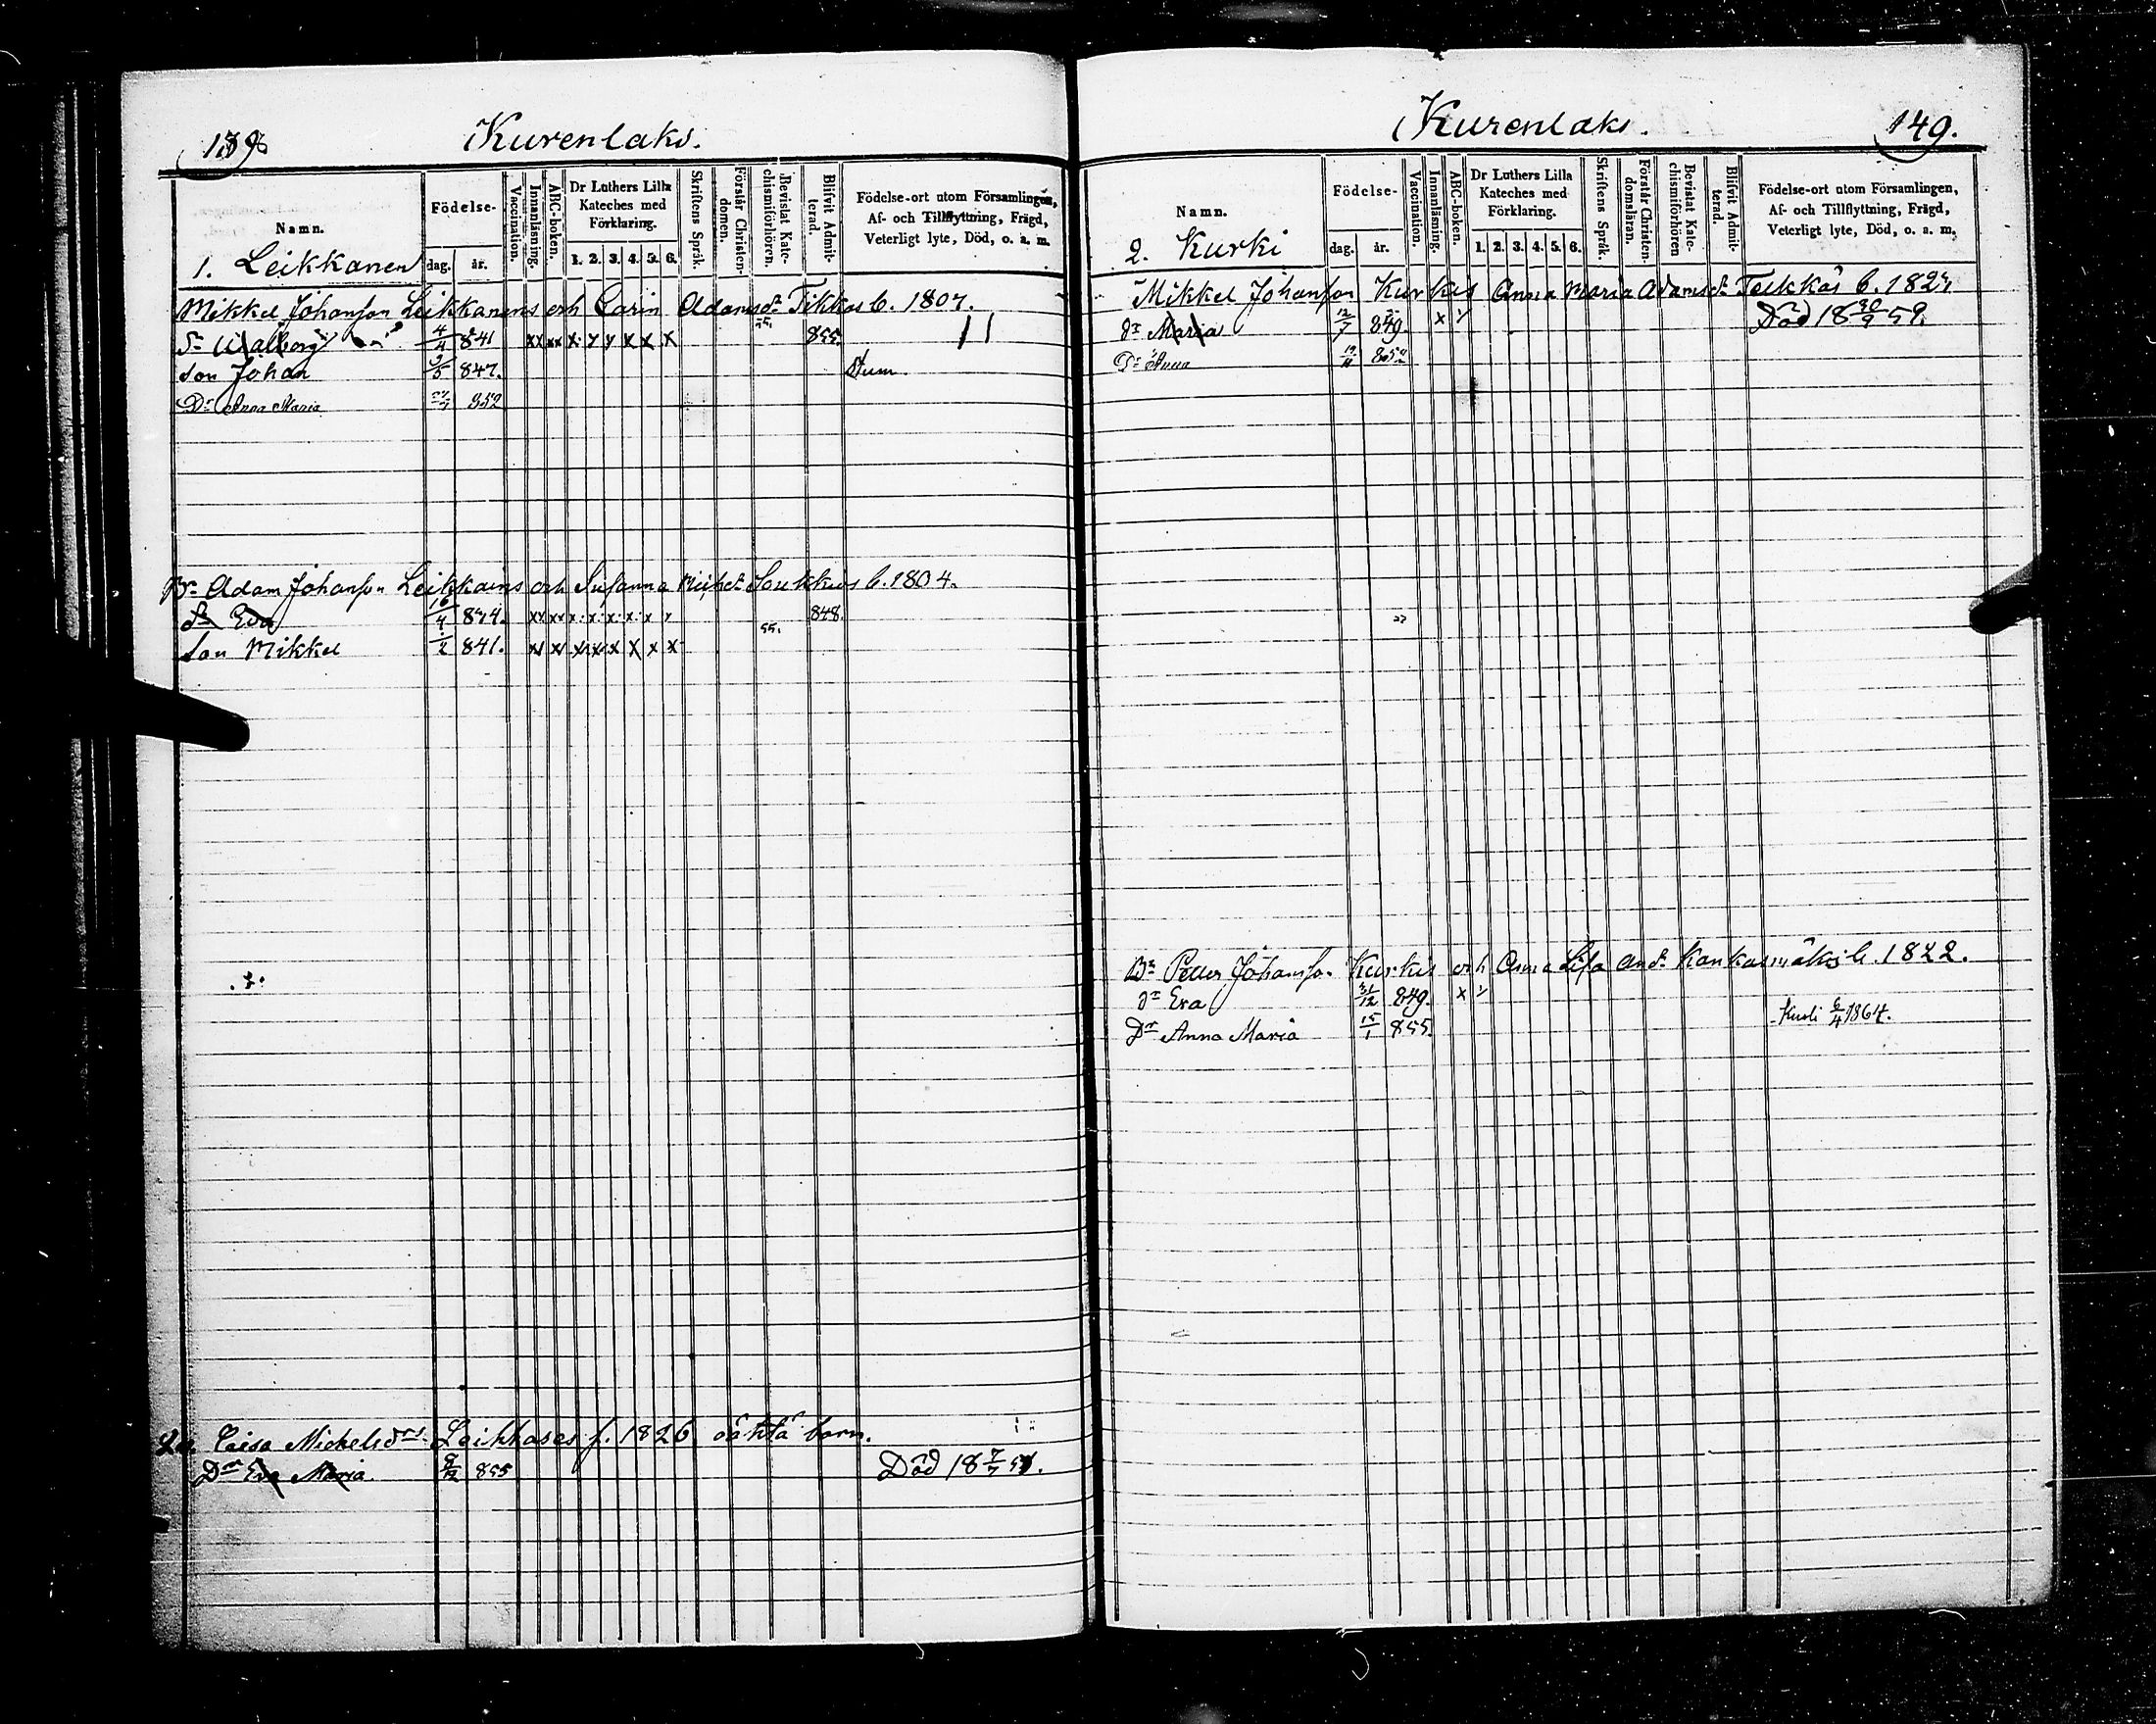 Kurenlaks.
Namn.
Födelse-
dag. år.
Vaccination.
Innanläsning.
ABC-boken.
Dr Luthers Lilla Kateches med Förklaring.
1. 2. 3. 4. 5. 6.
Skriftens Språk.
Förstår Christen-domen.
Bevistat Kate-chismiförhören.
Blifvit Admit-terad.
Födelse-ort utom Församlingen,
Af- och Tillflyttning, Frägd,
Veterligt lyte, Död, o. a. m.
1. Leikkanen
Mikkel Johansson Leikkanens och Carin Adamsdr Tikkas b. 1807.
dr Walborg 4/4 841 xx xx x x x x 855.
Son Johan 2/5 847. Stum.
Dr Anna Maria 852
Br Adam Johanson Leikkains och Susanna Soukkus b. 1804.
dr Eva 16/4 xx xx x x x x x 848.
55.
Son Mikkel 1/2 841. x x x x x x
Caisa Michelsdr Leikkases f. 1826 oäkta barn.
Dr Eva Maria 9/12 855 Död 18 7/7
Kurenlaks. 149.
Namn.
Födelse-
dag. år.
Vaccination.
Innanläsning.
ABC-boken.
Dr Luthers Lilla Kateches med Förklaring.
1. 2. 3. 4. 5. 6.
Skriftens Språk.
Förstår Christen-domsläran.
Bevistat Kate-chismiförhören
Blifvit Admit-terad.
Födelse-ort utom Församlingen,
Af- och Tillflyttning, Frägd,
Veterligt lyte, Död, o. a. m.
2. Kurki
Mikkel Johanson Kurkis Anna Maria Adamsdr Teikkäs b. 182
dr Maria 12/7 849 x Död 18 30/9 59.
Dr Anna 19/11
Br Petter Johanson Kurkis och Anna Lisa Andr Kankasmäkis b. 1822.
dr Eva 31/12 849. x
Dr Anna Maria 15/1 855. Kuoli 6/4 1864.